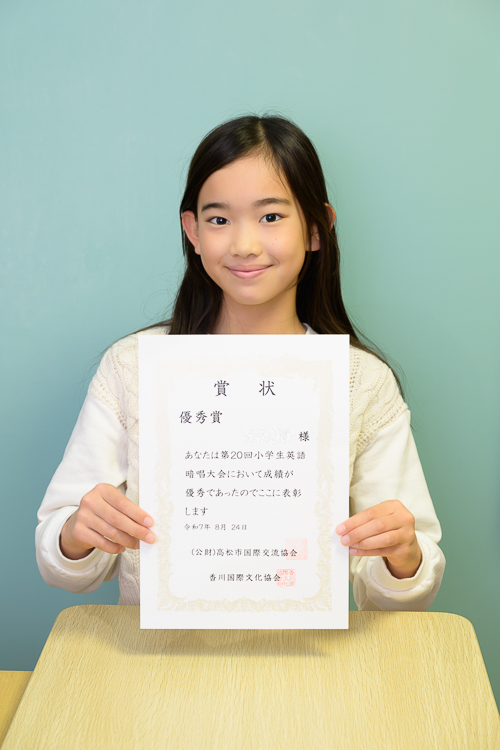 賞 状
優秀賞
様
あなたは第20回小学生英語
暗唱大会において成績が
優秀であったのでここに表彰
します
令和7年 8月 24日
(公財)高松市国際交流協会
香川国際文化協会